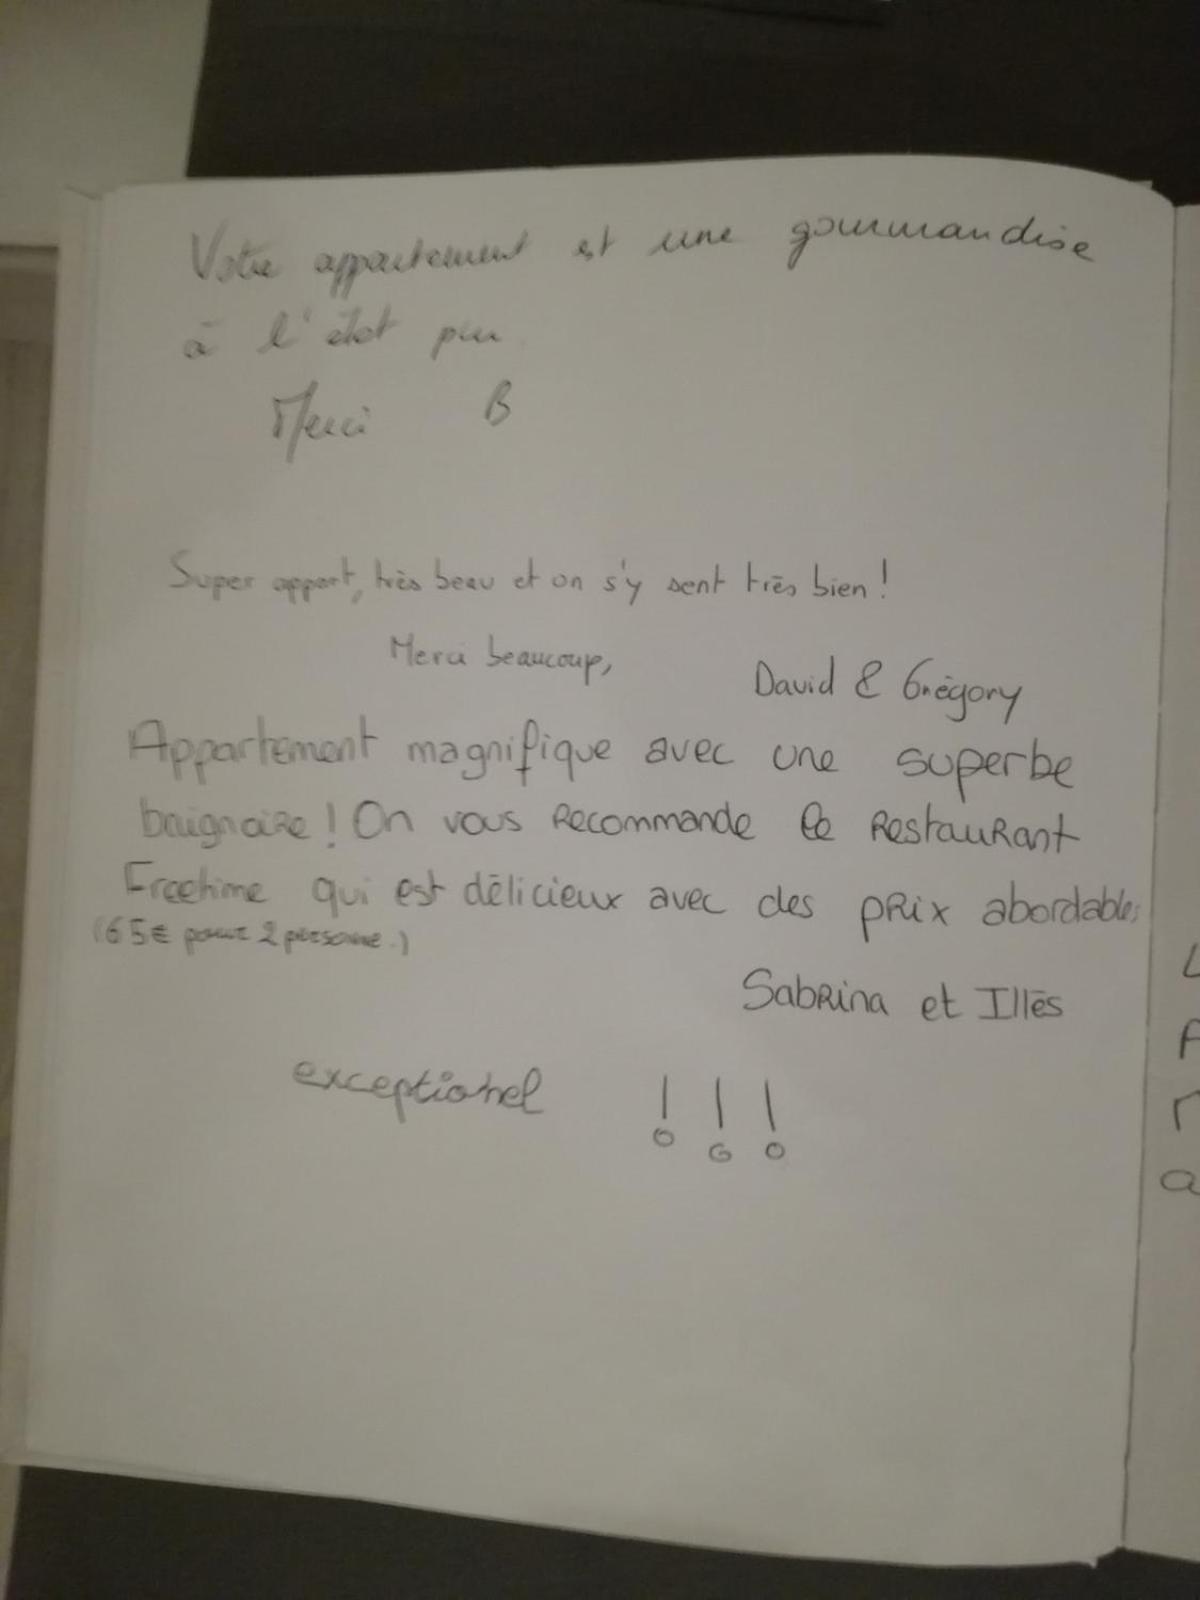 Votre appartement est une gourmandise
à l'état pur
Merci B
Super appart, très beau et on s'y sent très bien !
Merci beaucoup,
David & Grégory
Appartement magnifique avec une superbe
baignoire ! On vous recommande le restaurant
qui est délicieux avec des prix abordables
(65€ pour 2 personne.)
Sabrina et Illès
exceptionel !!!